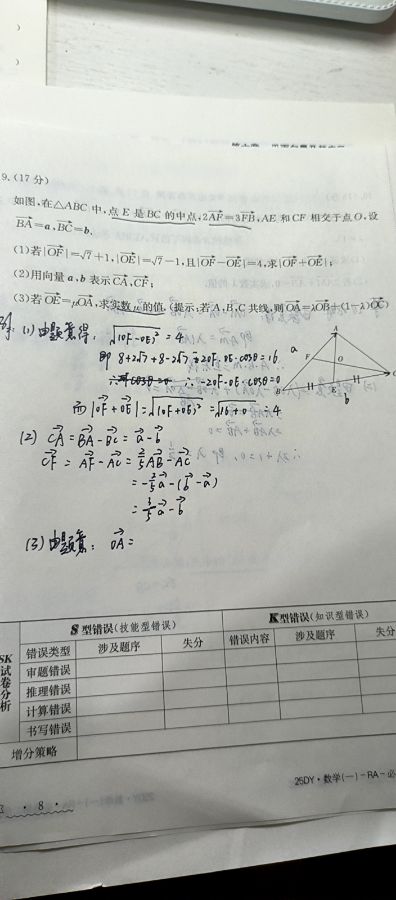 9.(17分)
如图,在△ABC中,点E是BC的中点,2AF=3FB,AE和CF相交于点O,设
BA=a,BC=b.
(1)若|OF|=√7+1,|OE|=√7-1,且|OF-OE|=4,求|OF+OE|;
(2)用向量a,b表示CA,CF;
(3)若OE=μOA,求实数μ的值.(提示:若A,B,C共线,则OA=λOB+(1-λ)OC)
(1)由题意得,√|OF-OE|²=4
即 8+2√7+8-2√7-2OF·OE·cosθ=16
∴-2OF·OE·cosθ=0
而|OF+OE|=√|OF+OE|²=√16+0=4
A
a
F
O
B
E
C
b
(2) CA=BA-BC=a-b
CF=AF-AC=3/5AB-AC
=-3/5a-(b-a)
(3)由题意:OA=
S型错误(技能型错误)
K型错误(知识型错误)
错误类型 涉及题序 失分 错误内容 涉及题序 失分
SK试卷分析
审题错误
推理错误
计算错误
书写错误
增分策略
· 8 ·
25DY·数学(一)-RA-必